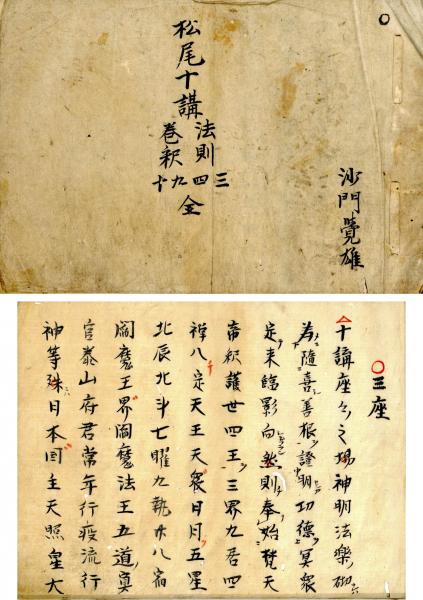 沙門覺雄
松尾十講
法則
卷釈
三
四
九
十
全
三座
十講座々之場神明法樂砌
為隨喜善根證明功德冥衆
定来臨影向然則奉始梵天
帝釈護世四王三界九居四
禅八定天王天衆日月五星
北辰北斗七曜九執廿八宿
閻魔王界閻魔法王五道冥
官泰山府君常年行疫流行
神等殊日本国主天照皇大